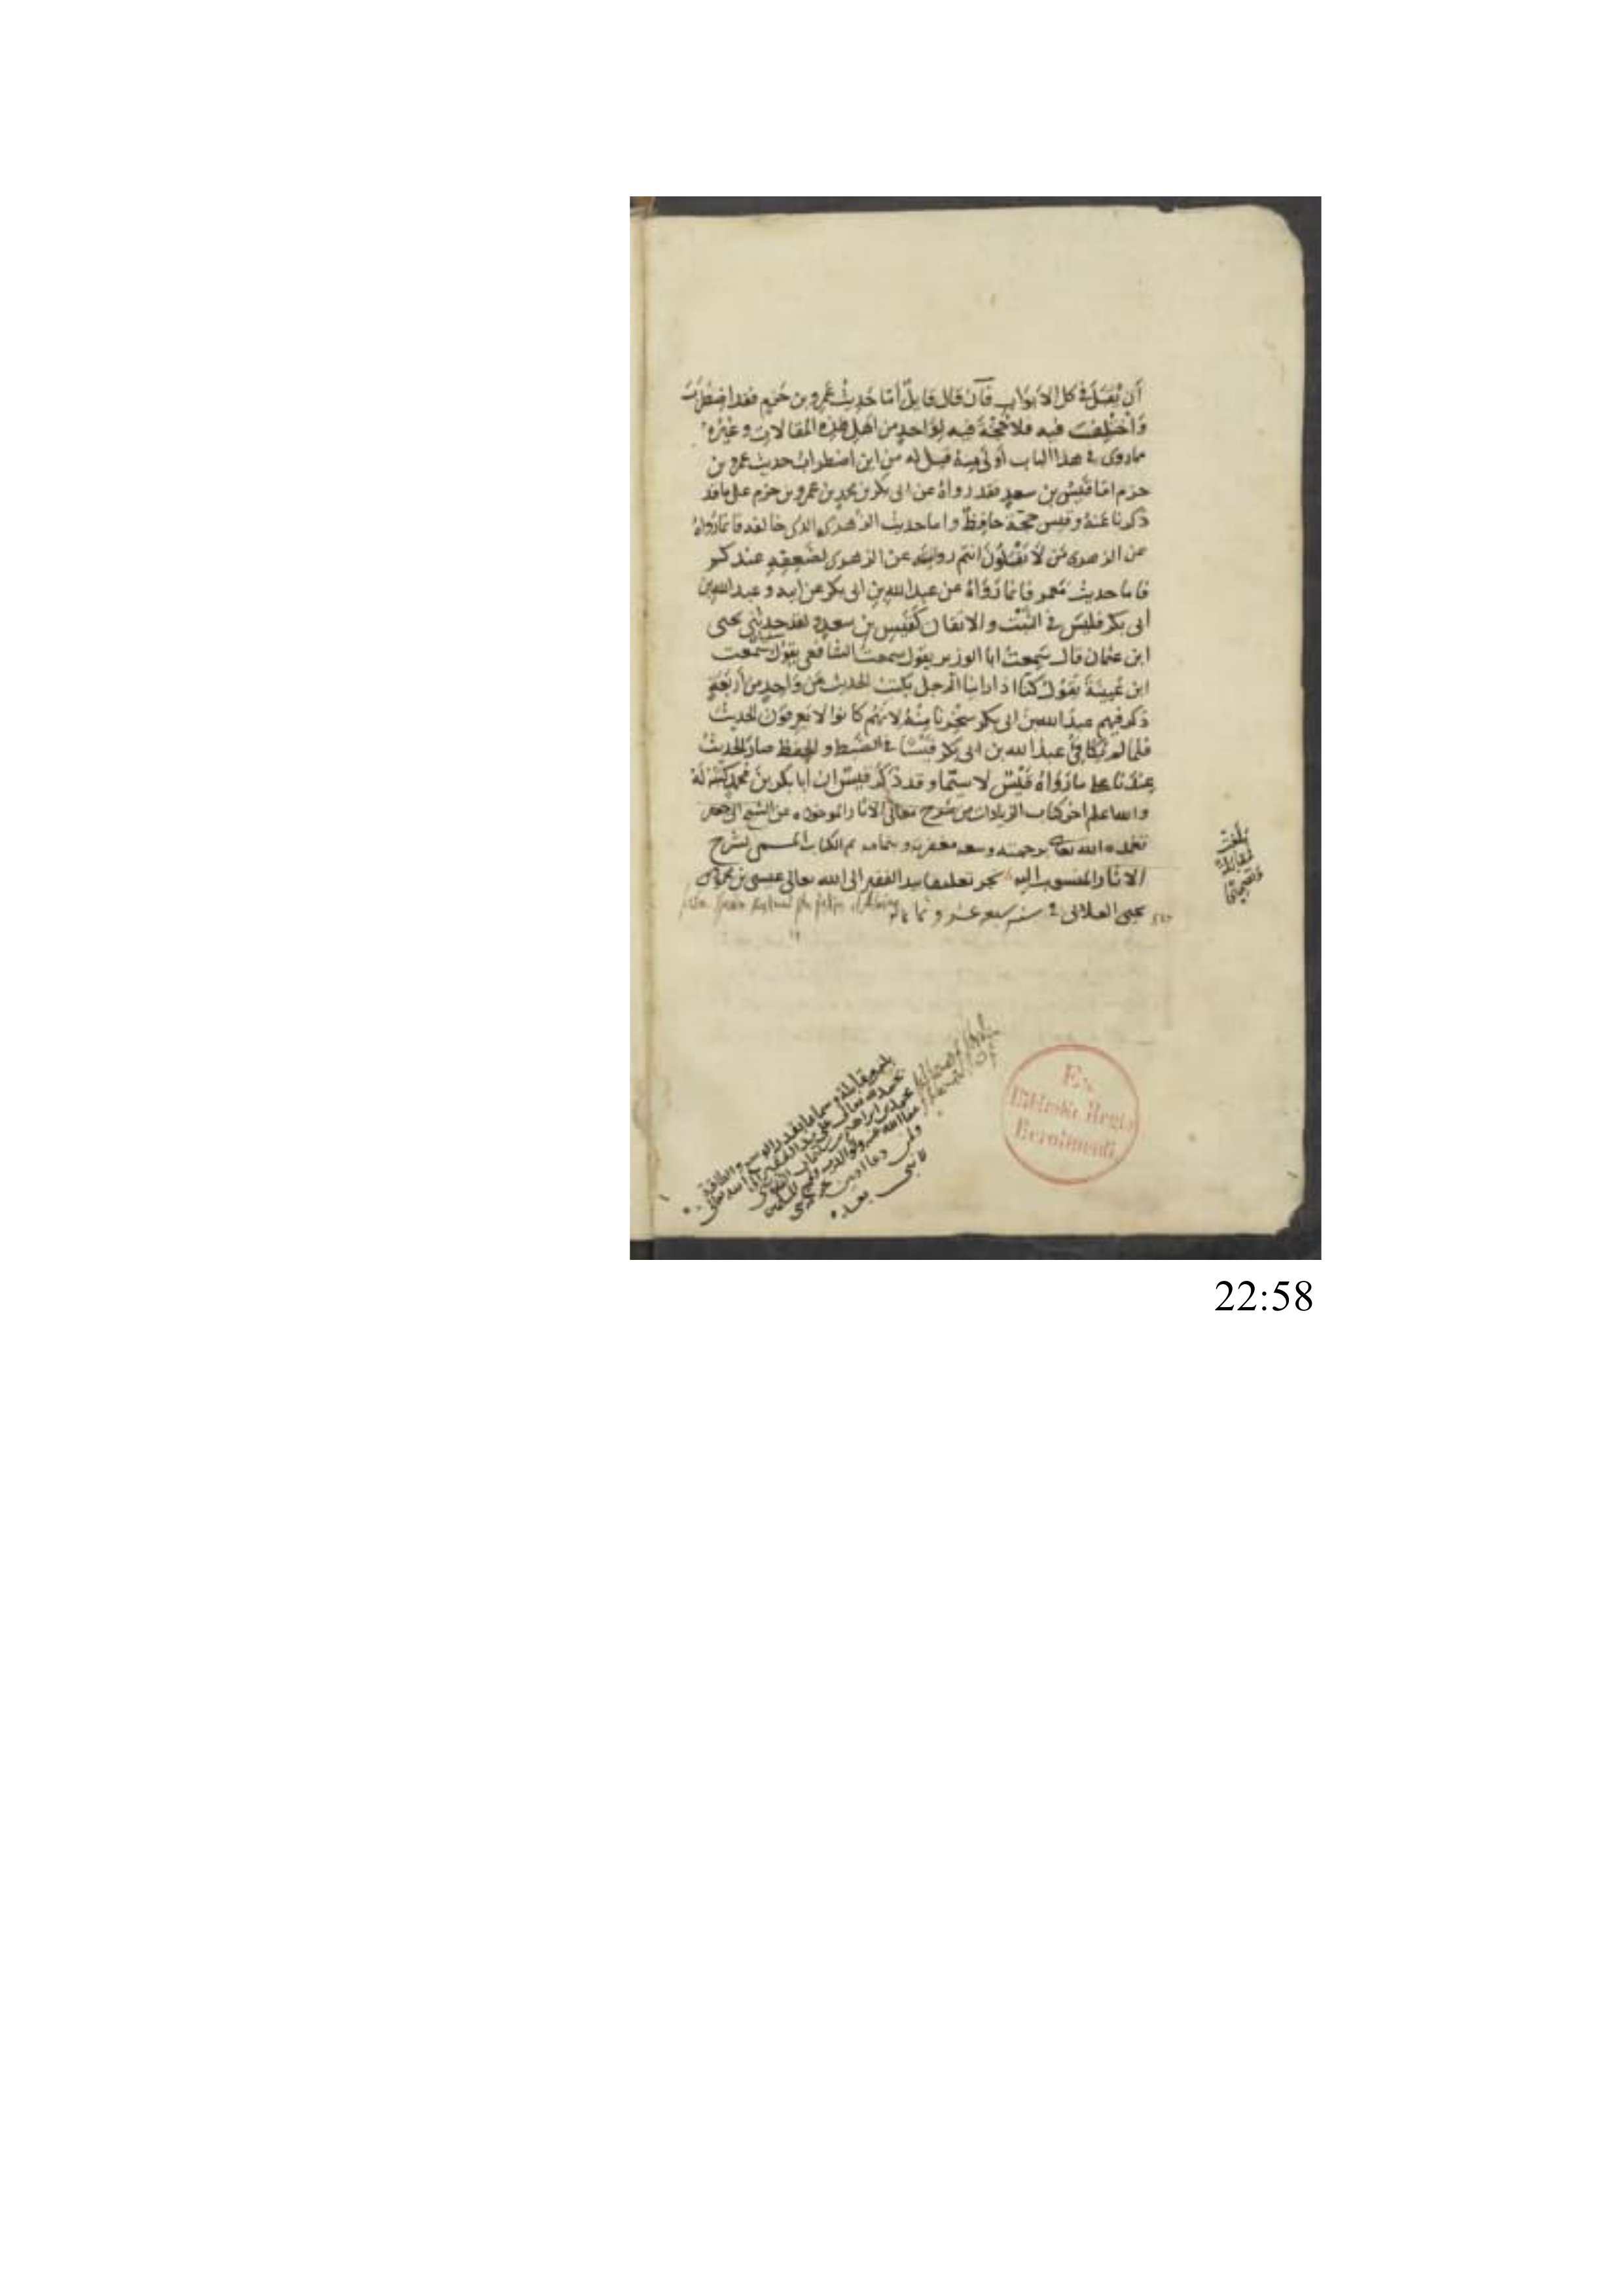 أن يقبل في كل الأبواب فان قال قايل أما حديث عمرو بن حزم فقد اضطرب
واختلف فيه فلا حجة فيه لواحد من اهل هذه المقالات وغيره
مما روى في هذا الباب أولى منه قيل له من اين اضطراب حديث عمرو بن
حزم اما قيس بن سعد فقد رواه عن ابى بكر بن محمد بن عمرو بن حزم على ما قد
ذكرنا عنه وقيس حجة حافظ واما حديث الزهرى الذى خالفه فانما رواه
عن الزهرى من لا تقبلون انتم روايته عن الزهرى لضعفه عندكم
فاما حديث معمر فانما رواه عن عبد الله بن ابى بكر عن ابيه وعبد الله بن
أبى بكر فليس في الثبت والاتقان كقيس بن سعد ولقد حدثنى يحيى
ابن عثمان قال سمعت ابا الوزير يقول سمعت الشافعى يقول سمعت
ابن عيينة يقول كنا اذا راينا الرجل يكتب الحديث عن واحد من أربعة
ذكر فيهم عبد الله بن ابى بكر سخرنا منه لانهم كانوا لا يعرفون الحديث
فلما لم يكافئ عبد الله بن ابى بكر قيسا في الضبط والحفظ صار الحديث
عندنا على ما رواه قيس لا سيما وقد ذكر قيس ان أبا بكر بن محمد كتبه له
والله اعلم اخر كتاب الزيادات من شرح معانى الاثار الموجوده عن الشيخ ابى جعفر
تغمده الله تعالى برحمته وسعه مغفرته وبتمامه تم الكتاب المسمى بشرح
الاثار المنسوب اليه نجز تعليقا بيد الفقير الى الله تعالى عيسى بن محمود بن
يحيى العلائى في سنه سبع عشر وثمانمائه
بلغت
مقابلة
وتصحيحا
بلغ مقابلة وسماعا بقدر الوسع والطاقة
بحمد الله تعالى على يد الفقير الى الله تعالى
محمد بن ابراهيم بن
عفا الله عنه ولوالديه ولجميع المسلمين
ولمن دعا
لا نبى بعده
Ex
Biblioth. Regia
Berolinensi
22:58